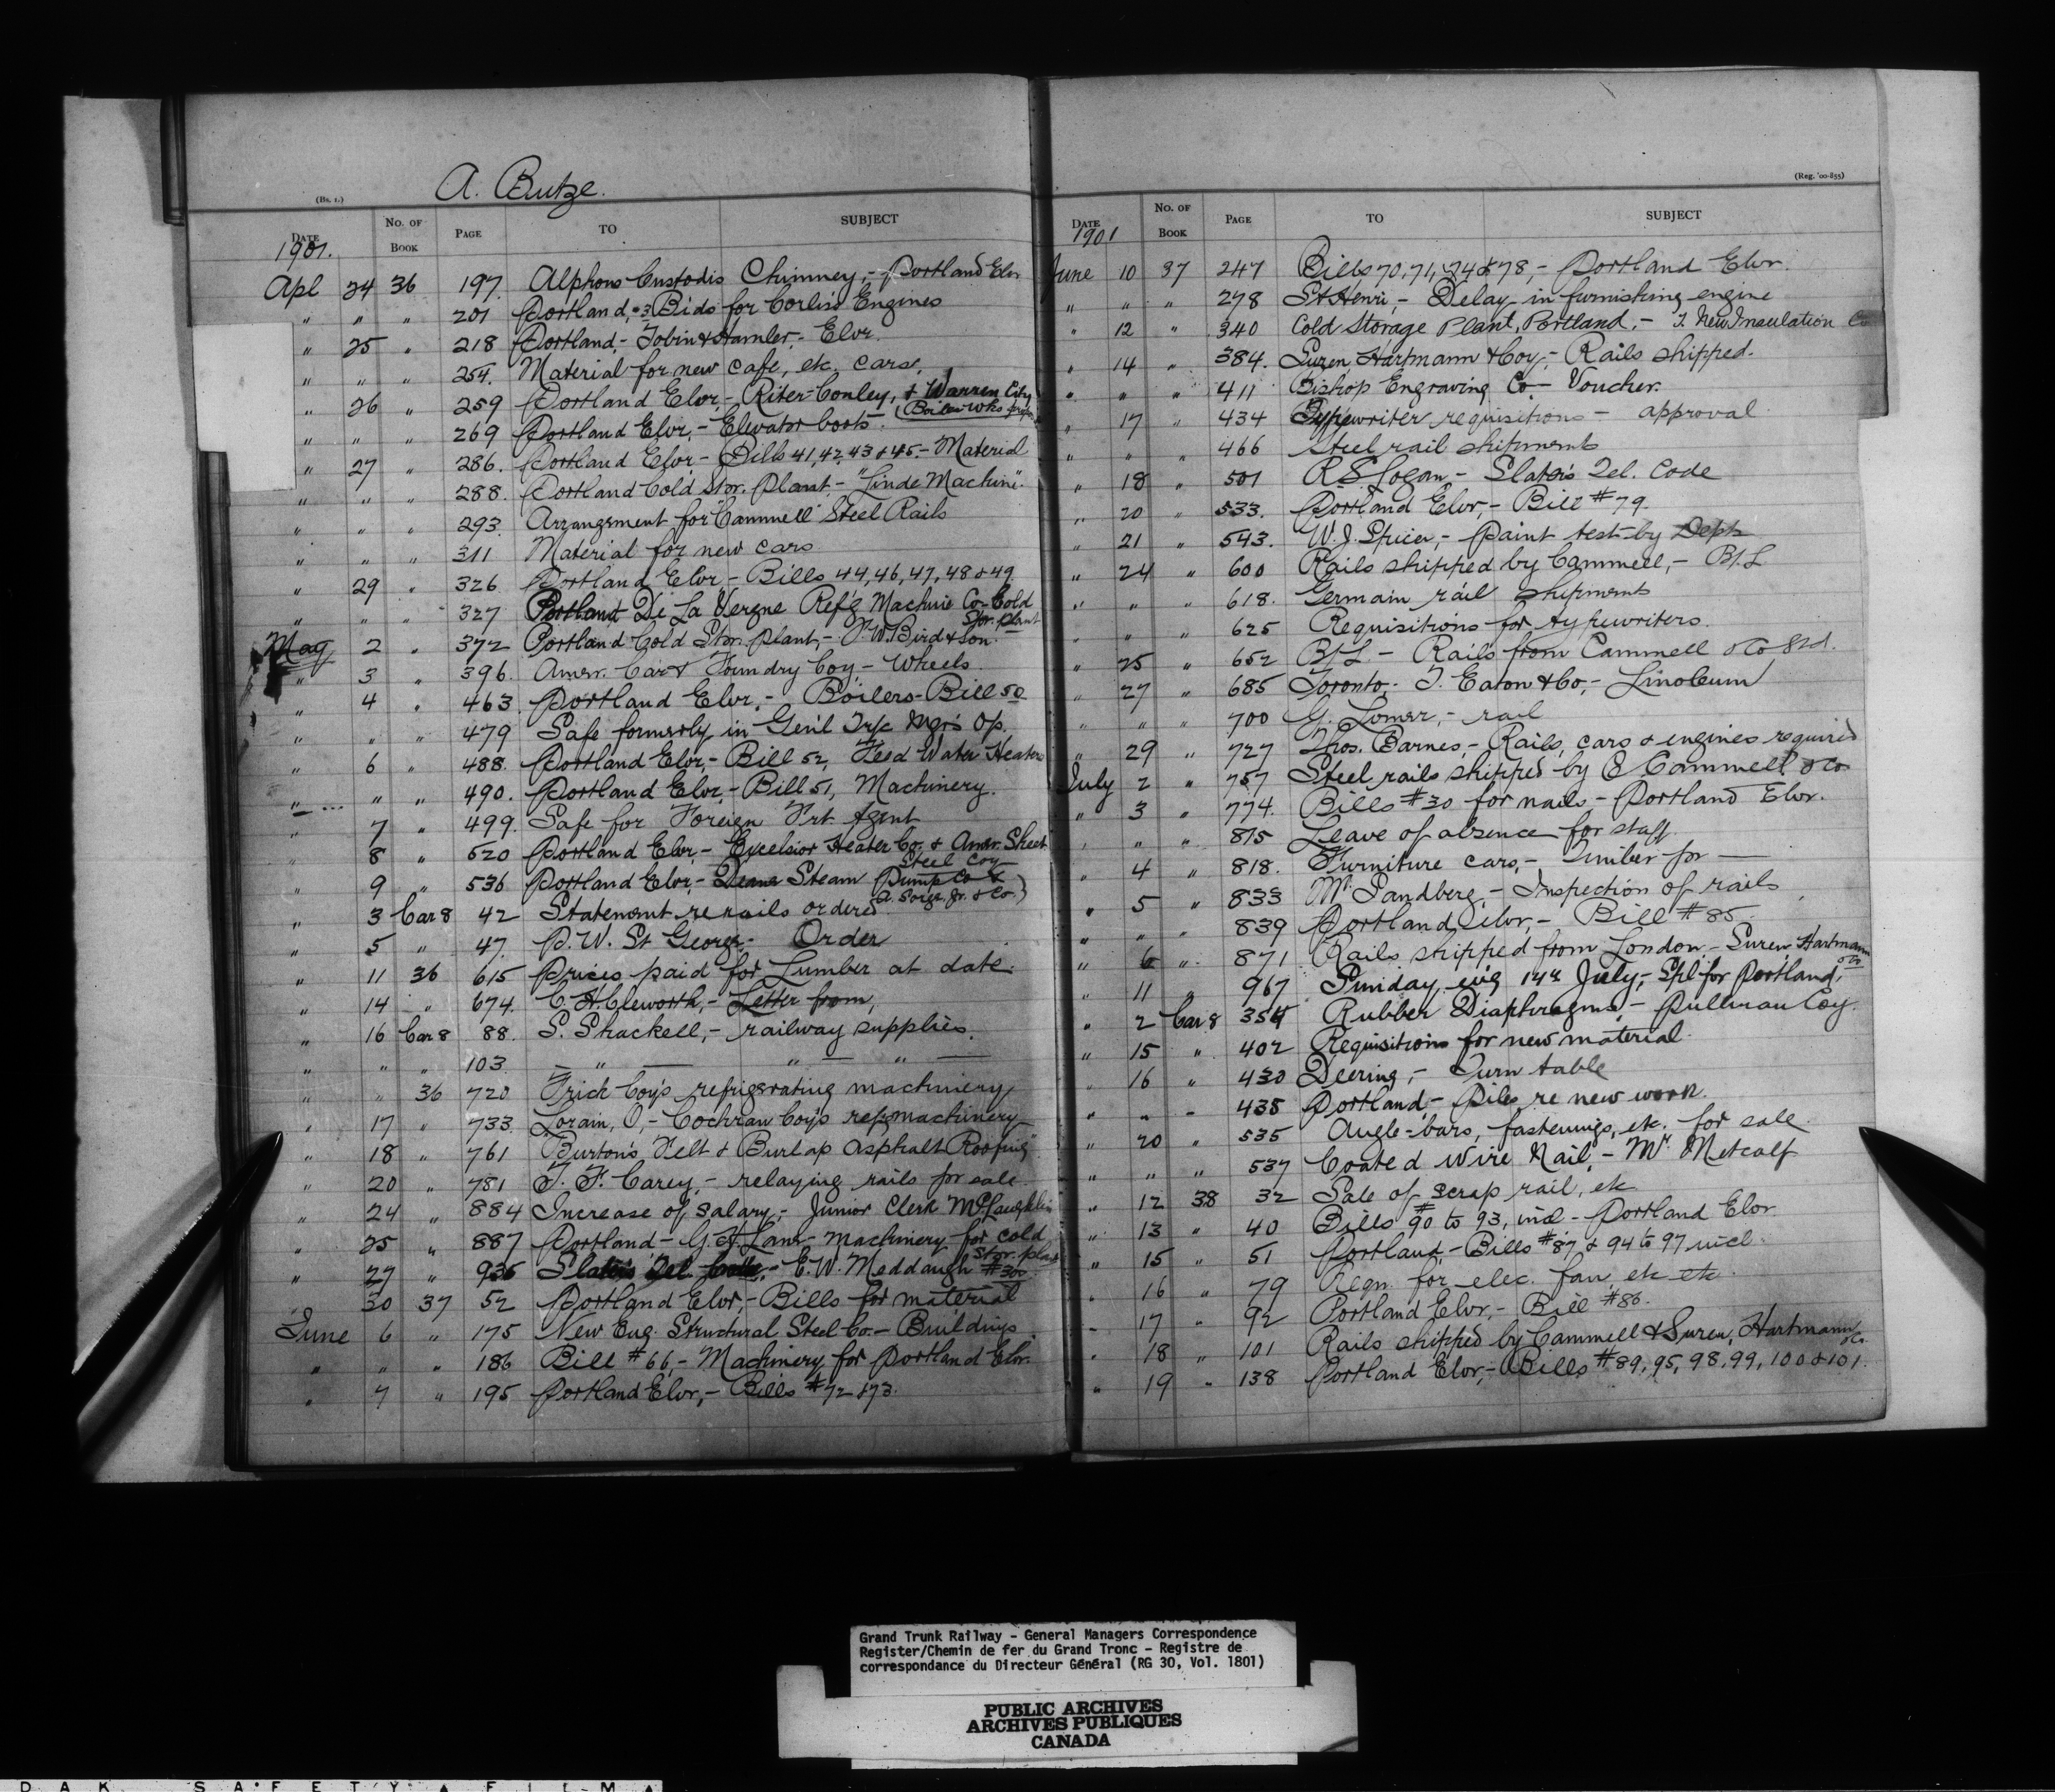 A. Butze.
(Bs. 1.)
DATE NO. OF BOOK PAGE TO SUBJECT
1901.
Apl 24 36 197. Alphons Custodis Chimney,- Portland Elvr
" " " 201 Portland,- 3 Bids for Corliss Engines
" 25 " 218 Portland,- Tobin & Hamler,- Elvr.
" " " 254. Material for new cafe, etc. cars.
" 26 " 259 Portland Elvr,- Riter-Conley, & Warren City
(Boiler Wks
" " " 269 Portland Elvr,- Elevator boots.
" 27 " 286. Portland Elvr,- Bills 41, 42, 43 & 45.- Material
" " " 288. Portland Cold Stor. Plant,- "Linde Machine".
" " " 293. Arrangement for "Cammell" Steel Rails
" " " 311 Material for new cars
" 29 " 326 Portland Elvr,- Bills 44, 46, 47, 48 & 49.
" " " 327 Portland De La Vergne Ref'g Machine Co- Cold
Stor. plant
May 2 " 372 Portland Cold Stor. plant,- F. W. Bird & Son.-
" 3 " 396. Amer. Car & Foundry Coy,- Wheels.
" 4 " 463. Portland Elvr,- Boilers- Bill 50
" " " 479 Safe formerly in Gen'l Trfc Mgr's Of.
" 6 " 488. Portland Elvr,- Bill 52, Feed Water Heaters
" " " 490. Portland Elvr,- Bill 51, Machinery.
" 7 " 499. Safe for Foreign Frt Agent
" 8 " 520 Portland Elvr,- Excelsior Heater Co. & Amer. Sheet
Steel Coy
" 9 " 536 Portland Elvr,- Deane Steam Pump Co &
A. Sorge, Jr. & Co.)
" 3 Car 8 42 Statement re rails ordered
" 5 " 47. P. W. St George,- Order
" 11 36 615 Prices paid for Lumber at date.
" 14 " 674. C. H. Cleworth,- Letter from,
" 16 Car 8 88. S. Shackell,- railway supplies.
" " " 103. — " — " — " —
" " 36 720 Frick Coy's refrigerating machinery
" 17 " 733. Lorain, O,- Cochran Coy's ref. machinery
" 18 " 761 "Burton's Felt & Burlap Asphalt Roofing"
" 20 " 781 T. F. Carey,- relaying rails for sale.
" 24 " 884 Increase of salary,- Junior Clerk McLaughlin
" 25 " 887 Portland- G. H. Lane- machinery for cold
Stor. plant
" 27 " 935 Slater's Tel. Code,- E. W. Meddaugh #300
" 30 37 52 Portland Elvr,- Bills for material
June 6 " 175 New Eng. Structural Steel Co.- Buildings
" " " 186 Bill #66,- Machinery for Portland Elvr.
" 7 " 195 Portland Elvr,- Bills #72 & 73.
(Reg. '00-855)
DATE NO. OF BOOK PAGE TO SUBJECT
1901
June 10 37 247 Bills 70, 71, 74 & 78,- Portland Elvr.
" " " 278 St Henri,- Delay in furnishing engine
" 12 " 340 Cold Storage Plant, Portland,- T. New Insulation Co
" 14 " 384. Suren, Hartmann & Coy,- Rails shipped.
" " " 411 Bishop Engraving Co- Voucher.
" 17 " 434 Typewriter requisitions - approval
" " " 466 Steel rail shipments
" 18 " 501 R. S. Logan,- Slater's Tel. Code
" 20 " 533. Portland Elvr,- Bill #79.
" 21 " 543. W. J. Spicer,- Paint test by Dept
" 24 " 600 Rails shipped by Cammell,- B/L
" " " 618. Germain rail shipments
" " " 625 Requisitions for typewriters.
" 25 " 652 B/L - Rails from Cammell & Co Ltd.
" 27 " 685 Toronto,- T. Eaton & Co,- Linoleum
" " " 700 G. Lomer,- rail
" 29 " 727 Thos. Barnes,- Rails, cars & engines required
July 2 " 757 Steel rails shipped by C Cammell & Co
" 3 " 774. Bills #30 for nails,- Portland Elvr.
" " " 815 Leave of absence for staff.
" 4 " 818. Furniture cars,- lumber for —
" 5 " 833 Mr. Sandberg,- Inspection of rails
" " " 839 Portland Elvr,- Bill #85.
" 6 " 871 Rails shipped from London,- Suren Hartmann
& Co
" 11 " 967 Sunday evg 14th July,- Spl for Portland,
" 2 Car 8 354 Rubber Diaphragms,- Pullman Coy.
" 15 " 402 Requisitions for new material.
" 16 " 430 Deering,- Turn table
" " " 438 Portland,- Piles re new work.
" 20 " 535 Angle-bars, fastenings, etc. for sale.
" " " 537 Coated Wire Nail,- Mr. Metcalf
" 12 38 32 Sale of scrap rail, etc
" 13 " 40 Bills #90 to 93, incl - Portland Elvr.
" 15 " 51 Portland,- Bills #87 & 94 to 97 incl.
" 16 " 79 Reqn. for elec. fan, etc etc.
" 17 " 92 Portland Elvr,- Bill #86.
" 18 " 101 Rails shipped by Cammell & Suren, Hartmann
& Co.
" 19 " 138 Portland Elvr,- Bills #89, 95, 98, 99, 100 & 101.
Grand Trunk Railway - General Managers Correspondence
Register/Chemin de fer du Grand Tronc - Registre de
correspondance du Directeur Général (RG 30, Vol. 1801)
PUBLIC ARCHIVES
ARCHIVES PUBLIQUES
CANADA
DAK SAFETY FILM